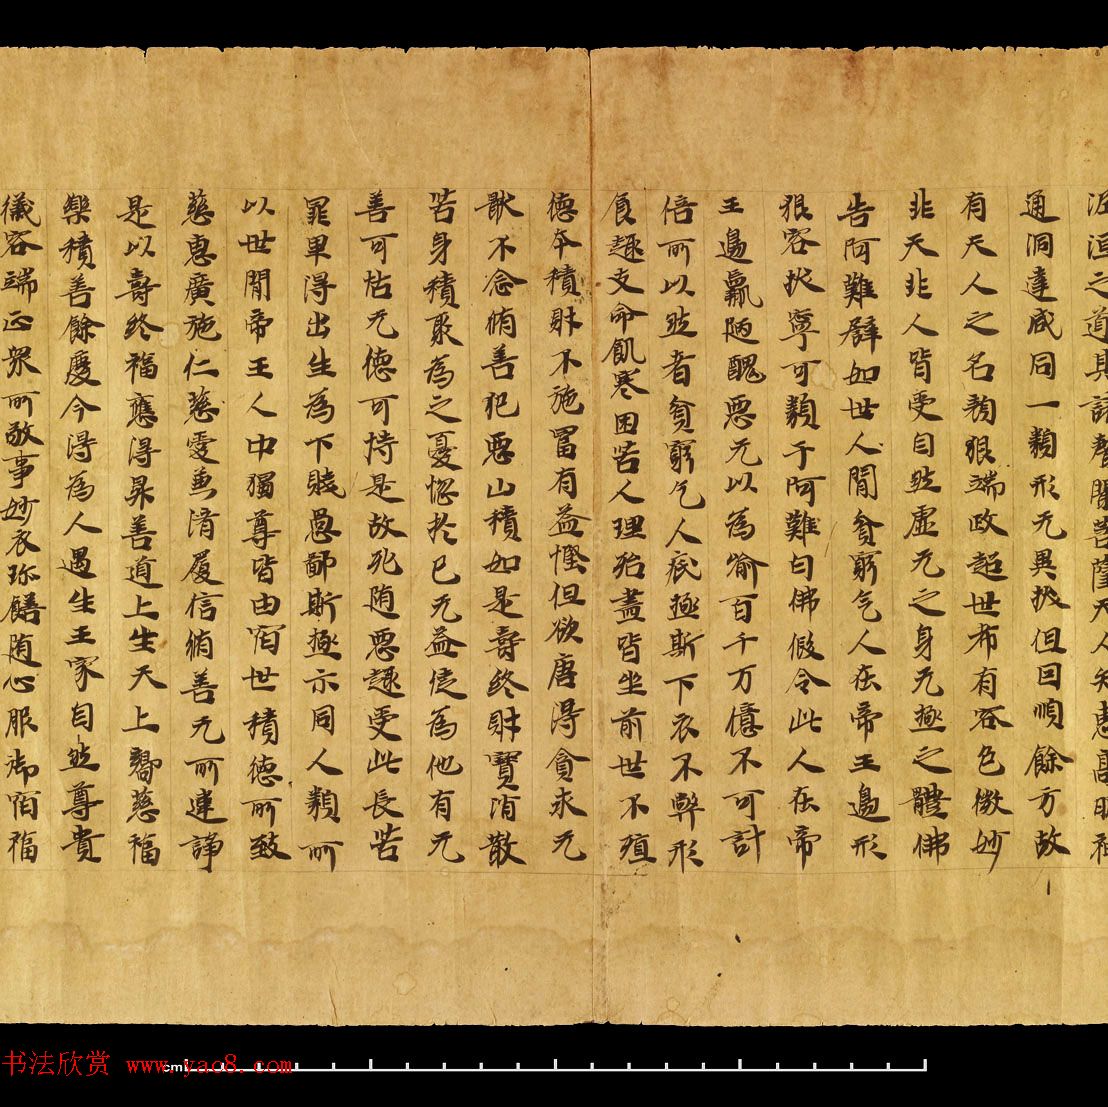 泥洹之道其諸聲聞菩薩天人知惠高明神
通洞達咸同一類形无異狀但因順餘方故
有天人之名顏狠端政超世希有容色微妙
非天非人皆受自然虛无之身无極之體佛
告阿難譬如世人間貧窮乞人在帝王邊形
狠容狀寧可類乎阿難白佛假令此人在帝
王邊羸陋醜惡无以為喻百千万億不可計
倍所以然者貧窮乞人底極斯下衣不弊形
食趣支命飢寒困苦人理殆盡皆坐前世不殖
德本積財不施冨有益慳但欲唐得貪求无
猒不念脩善犯惡山積如是壽終財寶消散
苦身積聚為之憂惱於己无益徒為他有无
善可怙无德可恃是故死隨惡趣受此長苦
罪畢得出生為下賤愚鄙斯極示同人類所
以世間帝王人中獨尊皆由宿世積德所致
慈惠廣施仁慈愛兼濟履信脩善无所違諍
是以壽終福應得昇善道上生天上嚮慈福
樂積善餘慶今得為人遇生王家自然尊貴
儀容端正衆所敬事妙衣珎饍随心服御宿福
书法欣赏 www.yac8.com
cm